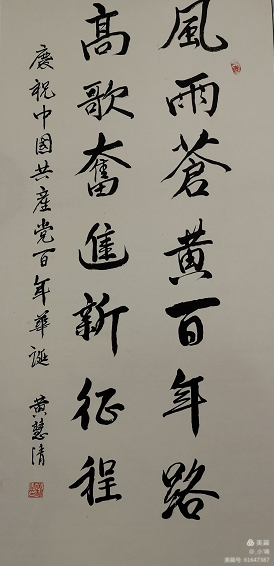 風雨蒼黄百年路
高歌奮進新征程
慶祝中國共產党百年華誕
黄慧清
美篇
@小猪
美篇号 61647387